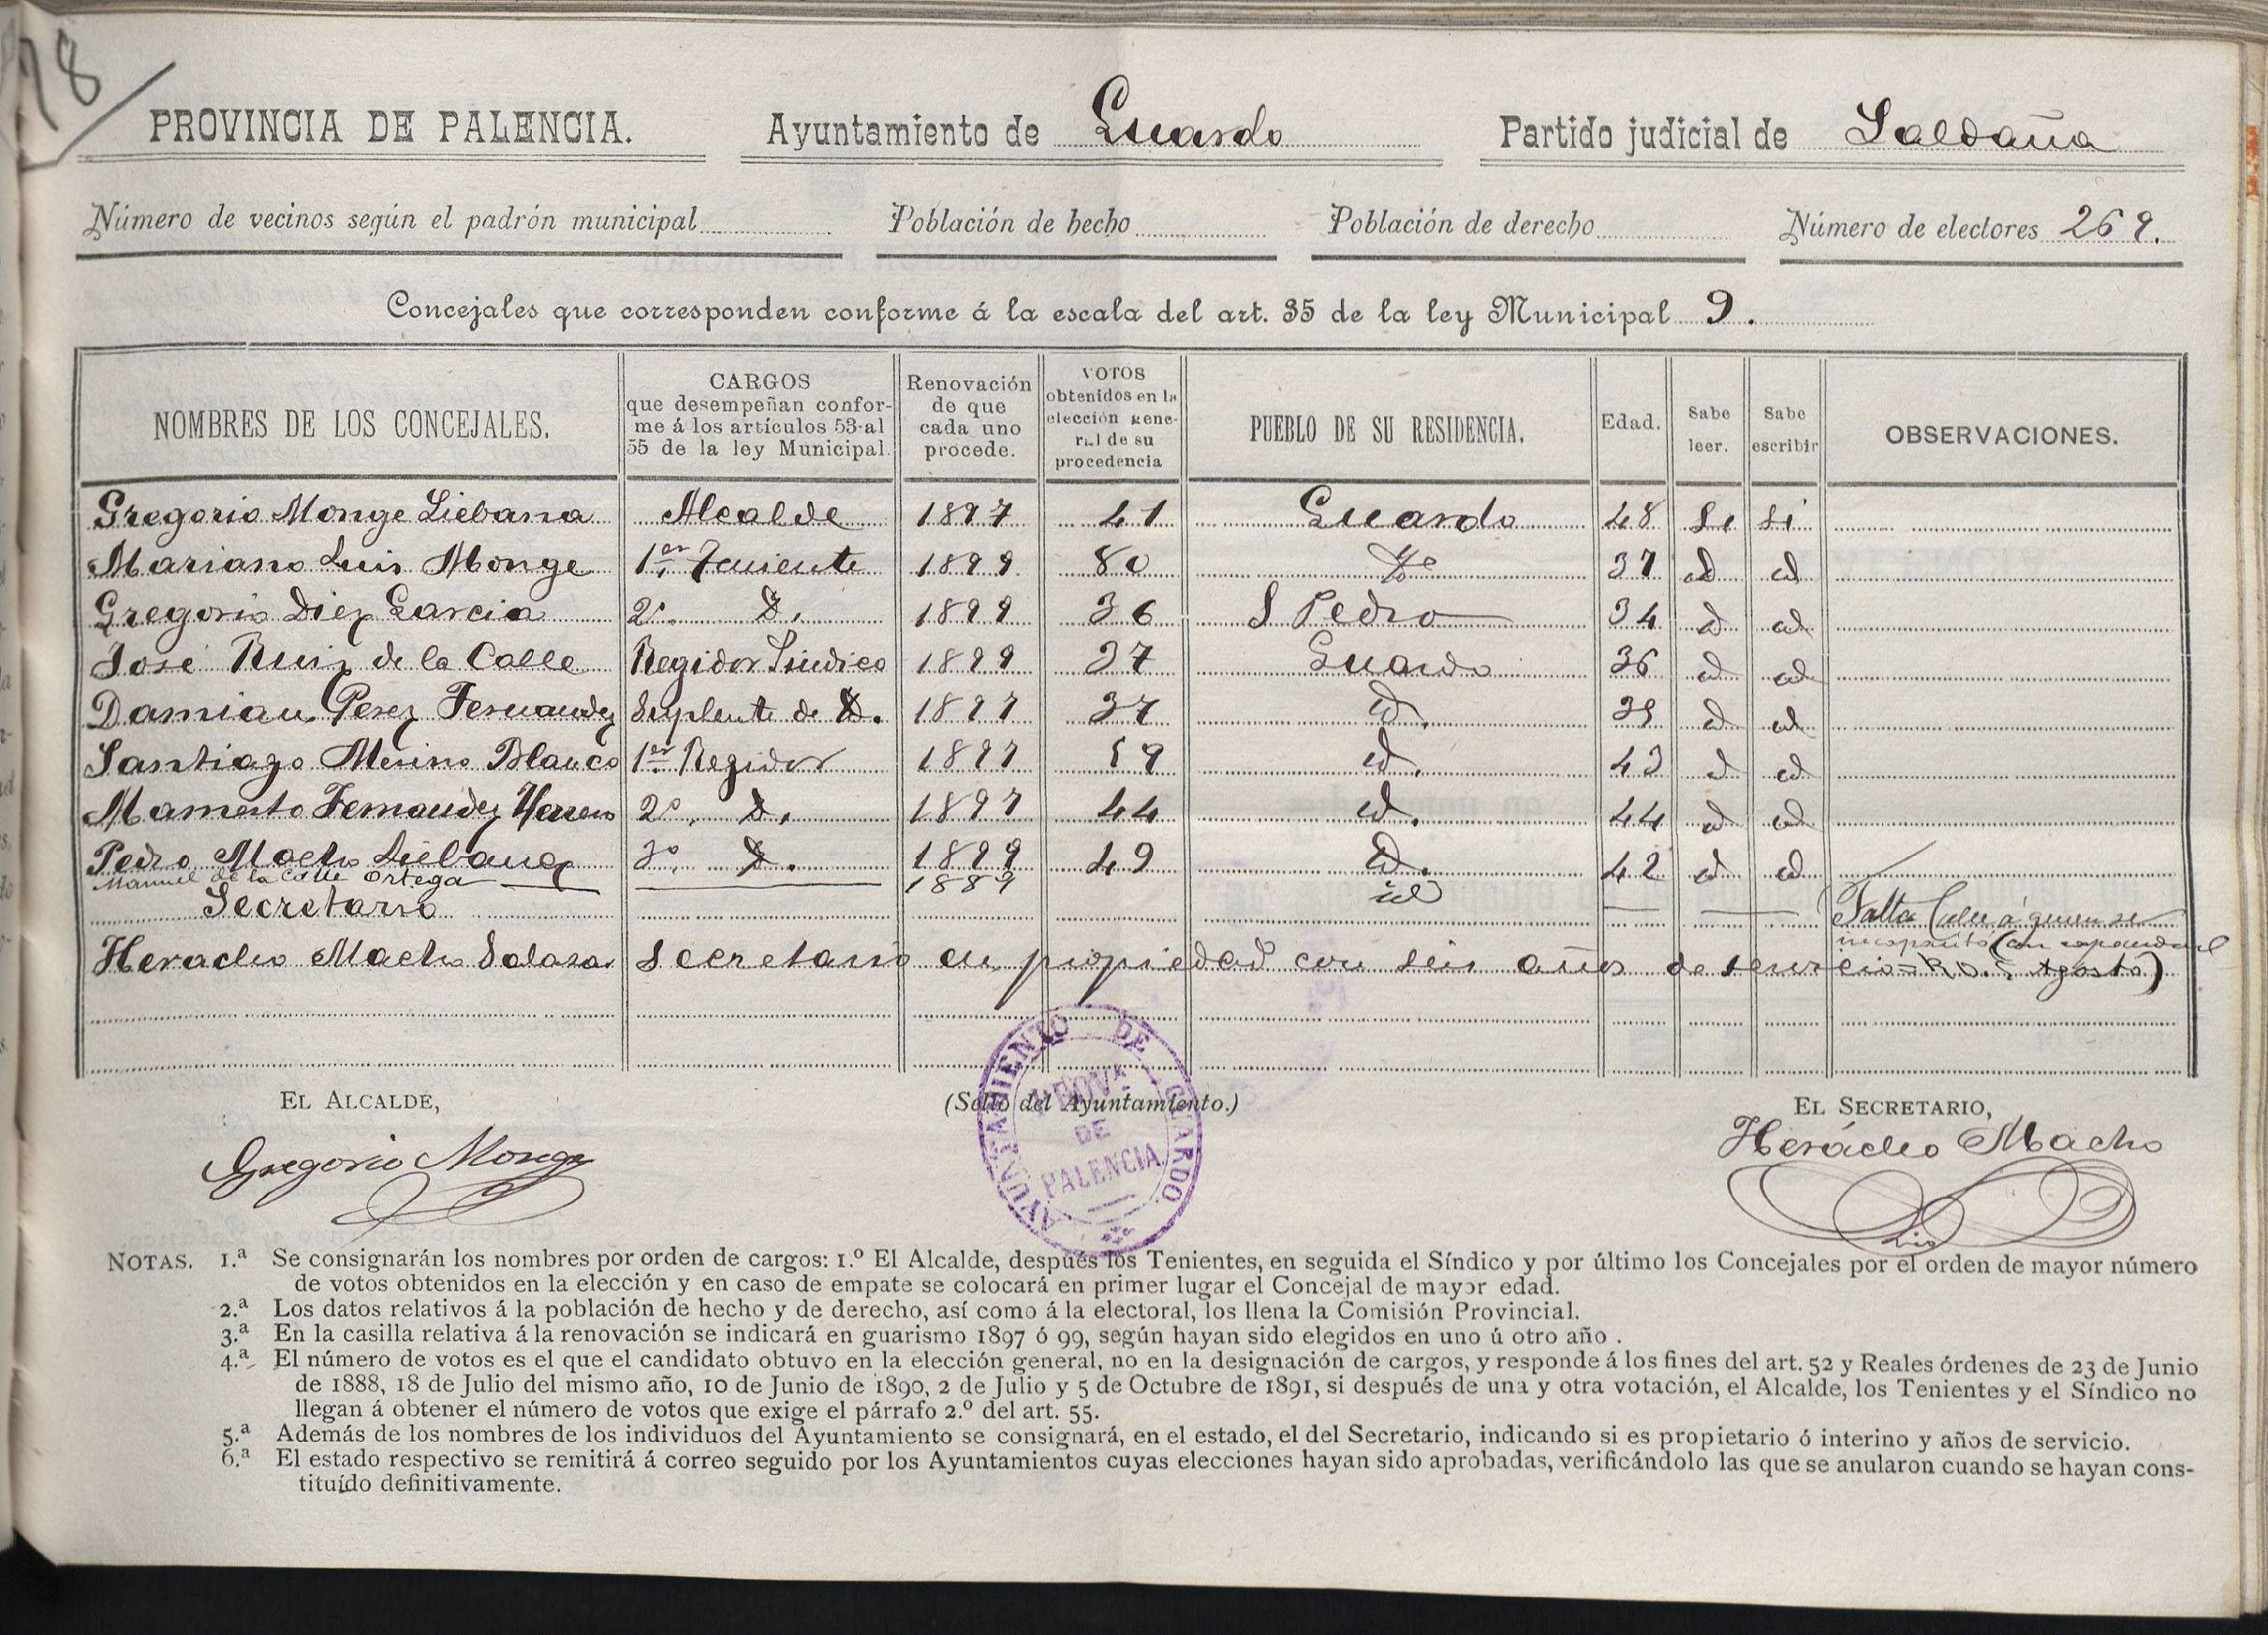 78
PROVINCIA DE PALENCIA. Ayuntamiento de Guardo Partido judicial de Saldaña
Número de vecinos según el padrón municipal Población de hecho Población de derecho Número de electores 269.
Concejales que corresponden conforme á la escala del art. 35 de la ley Municipal 9.
NOMBRES DE LOS CONCEJALES. CARGOS que desempeñan confor- me á los artículos 53 al 55 de la ley Municipal. Renovación de que cada uno procede. VOTOS obtenidos en la elección gene- ral de su procedencia PUEBLO DE SU RESIDENCIA. Edad. Sabe leer. Sabe escribir OBSERVACIONES.
Gregorio Monge Liebana Alcalde 1897 41 Guardo 48 Si Si
Mariano Luis Monge 1er Teniente 1899 80 37 id id
Gregorio Diez Garcia 2º. D. 1899 36 S Pedro 34 id id
José Ruiz de la Calle Regidor Sindico 1899 37 Guardo 36 id id
Damian Perez Fernandez Suplente de D. 1897 37 id. 39 id id
Santiago Merino Blanco 1er Regidor 1897 59 id. 43 id id
Mamerto Fernandez Herrero 2º. D. 1897 44 id. 44 id id
Pedro Macho Liebana 3º. D. 1899 49 id. 42 id id
Manuel de la Calle Ortega 1889 id
Secretario
Falta Calle á quien se
incapacitó (con
Heraclio Macho Salazar Secretario en propiedad con seis años de servicio R.O. Agosto)
EL ALCALDE, (Sello del Ayuntamiento.) EL SECRETARIO,
AYUNTAMIENTO DE GUARDO
PROVª DE PALENCIA
Gregorio Monge Heráclio Macho
NOTAS. 1.ª Se consignarán los nombres por orden de cargos: 1.º El Alcalde, después los Tenientes, en seguida el Síndico y por último los Concejales por el orden de mayor número
de votos obtenidos en la elección y en caso de empate se colocará en primer lugar el Concejal de mayor edad.
2.ª Los datos relativos á la población de hecho y de derecho, así como á la electoral, los llena la Comisión Provincial.
3.ª En la casilla relativa á la renovación se indicará en guarismo 1897 ó 99, según hayan sido elegidos en uno ú otro año .
4.ª El número de votos es el que el candidato obtuvo en la elección general, no en la designación de cargos, y responde á los fines del art. 52 y Reales órdenes de 23 de Junio
de 1888, 18 de Julio del mismo año, 10 de Junio de 1890, 2 de Julio y 5 de Octubre de 1891, si después de una y otra votación, el Alcalde, los Tenientes y el Síndico no
llegan á obtener el número de votos que exige el párrafo 2.º del art. 55.
5.ª Además de los nombres de los individuos del Ayuntamiento se consignará, en el estado, el del Secretario, indicando si es propietario ó interino y años de servicio.
6.ª El estado respectivo se remitirá á correo seguido por los Ayuntamientos cuyas elecciones hayan sido aprobadas, verificándolo las que se anularon cuando se hayan cons-
tituído definitivamente.